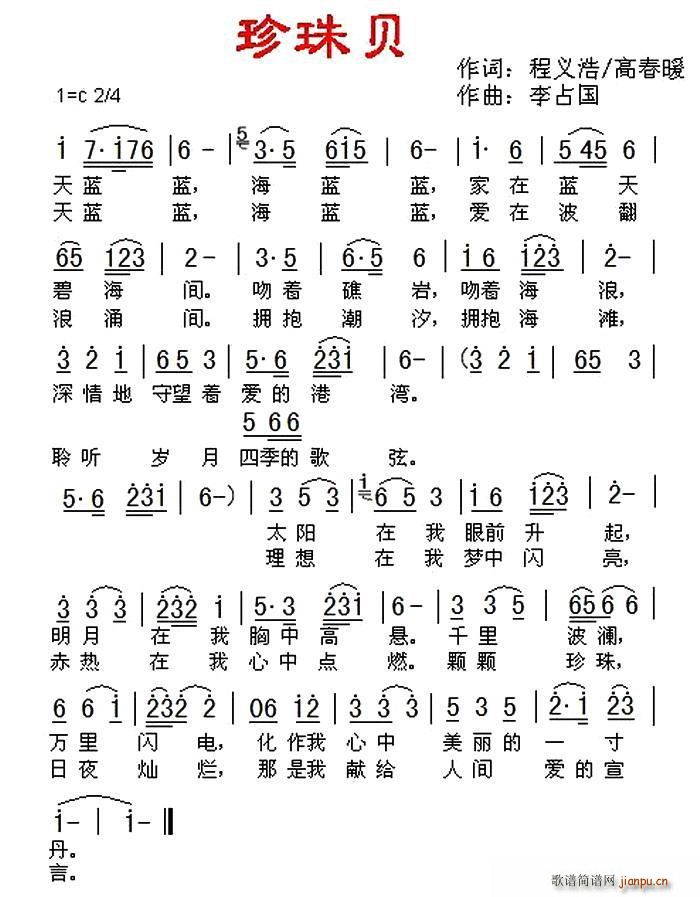 珍珠贝
作词：程义浩/高春暖
1=c 2/4
作曲：李占国
i 7·i76 | 6 – | 5 3·5 6i5 | 6– | i· 6 | 5 45 6 |
天蓝 蓝，海 蓝 蓝，家在蓝天
天蓝 蓝，海 蓝 蓝，爱在波翻
65 123 | 2 – | 3·5 | 6·5 6 | i 6 i23 |
碧海 间。吻着礁岩，吻着海浪，
浪涌 间。拥抱潮汐，拥抱海滩，
3 2 i | 6 5 3 | 5·6 231 | 6– | (3 2 i | 65 3 |
深情地 守望着 爱的港 湾。
5 66
聆听 岁月 四季的歌 弦。
5·6 231 | 6–) | 3 5 3 | i 6 5 3 | i 6 i23 | 2– |
太阳 在我眼前升起，
理想 在我梦中闪亮，
3 3 3 | 232 i | 5·3 231 | 6– | 3 3 5 | 65 6 |
明月 在我胸中高 悬。千里 波澜，
赤热 在我心中点 燃。颗颗 珍珠，
6 6 i | 232 2 | 06 i2 | 3 3 3 | 5 3 5 | 2·i 23 |
万里 闪电，化作我心中 美丽的一寸
日夜 灿烂，那是我献给 人间 爱的宣
i– | i– ‖
丹。
言。
歌谱简谱网
jianpu.cn